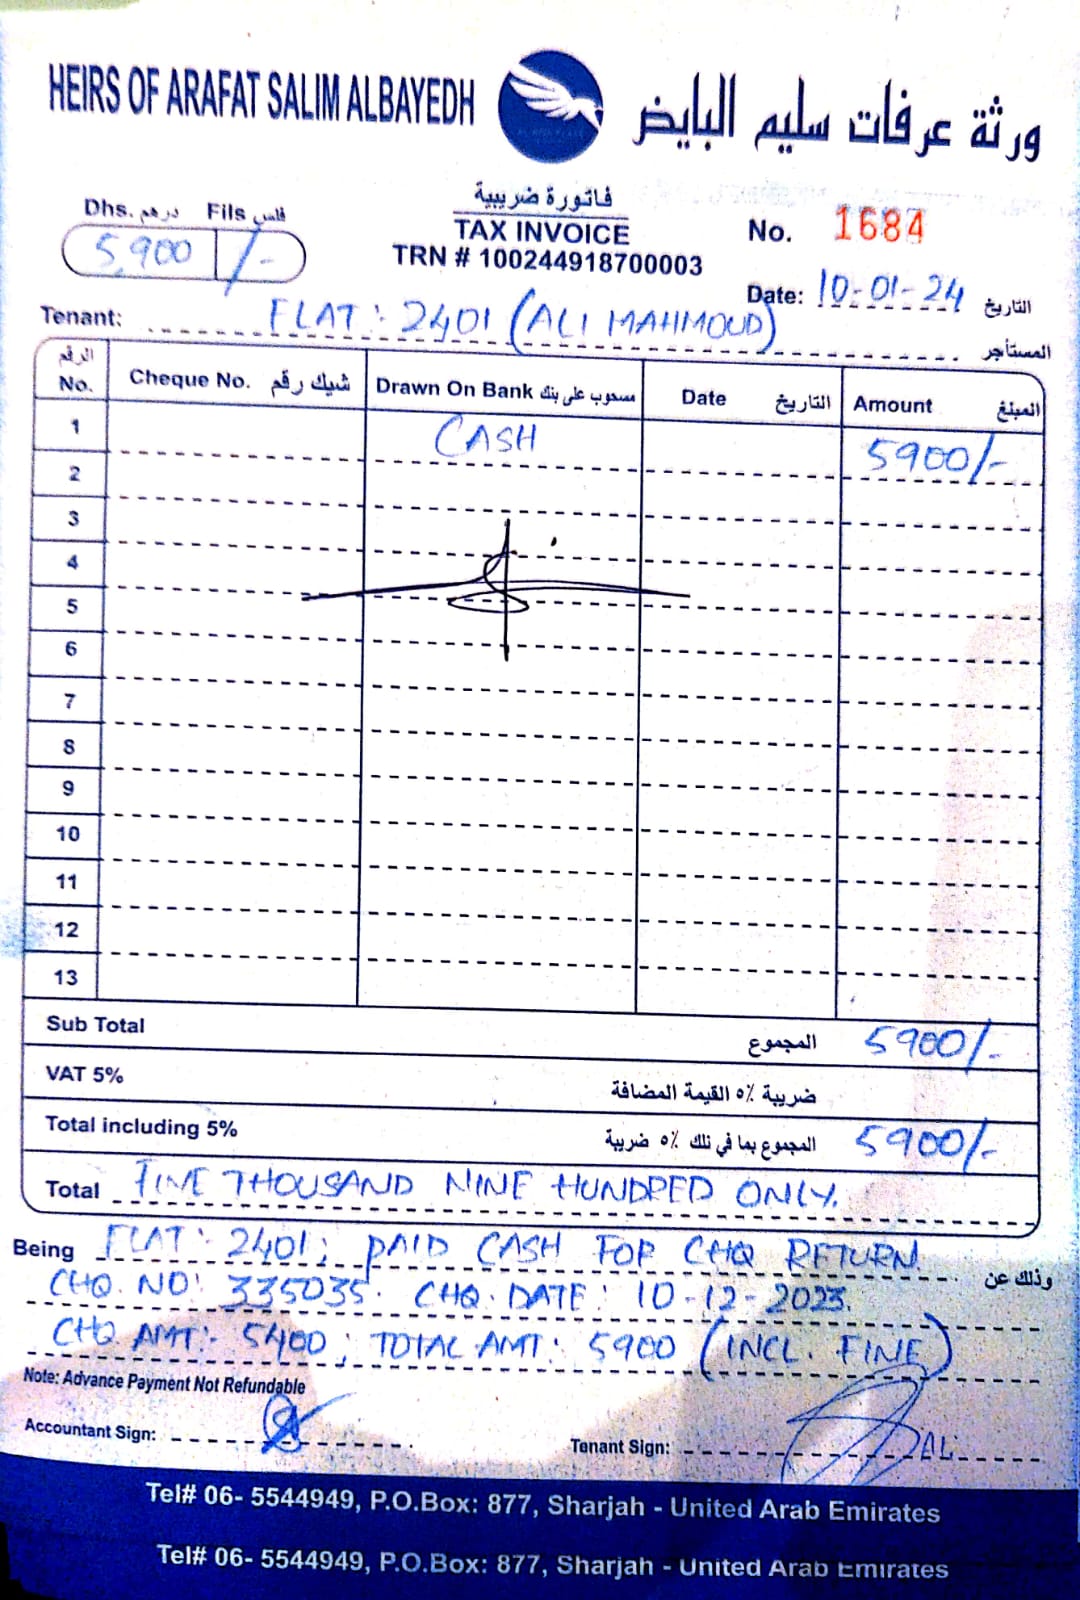 HEIRS OF ARAFAT SALIM ALBAYEDH
ورثة عرفات سليم البايض
Dhs. درهم Fils فلس
5,900 /-
فاتورة ضريبية
TAX INVOICE
TRN # 100244918700003
No. 1684
Date: 10-01-24 التاريخ
Tenant: FLAT: 2401 (ALI MAHMOUD) المستأجر
الرقم No. Cheque No. شيك رقم Drawn On Bank مسحوب على بنك Date التاريخ Amount المبلغ
1 CASH 5900/-
2
3
4
5
6
7
8
9
10
11
12
13
Sub Total المجموع 5900/-
VAT 5% ضريبة ٥٪ القيمة المضافة
Total including 5% المجموع بما في ذلك ٥٪ ضريبة 5900/-
Total FIVE THOUSAND NINE HUNDRED ONLY.
Being FLAT: 2401; PAID CASH FOR CHQ RETURN وذلك عن
CHQ. NO: 335035. CHQ. DATE: 10-12-2023.
CHQ AMT:- 5400; TOTAL AMT: 5900 (INCL. FINE)
Note: Advance Payment Not Refundable
Accountant Sign:
Tenant Sign: ALi
Tel# 06- 5544949, P.O.Box: 877, Sharjah - United Arab Emirates
Tel# 06- 5544949, P.O.Box: 877, Sharjah - United Arab Emirates